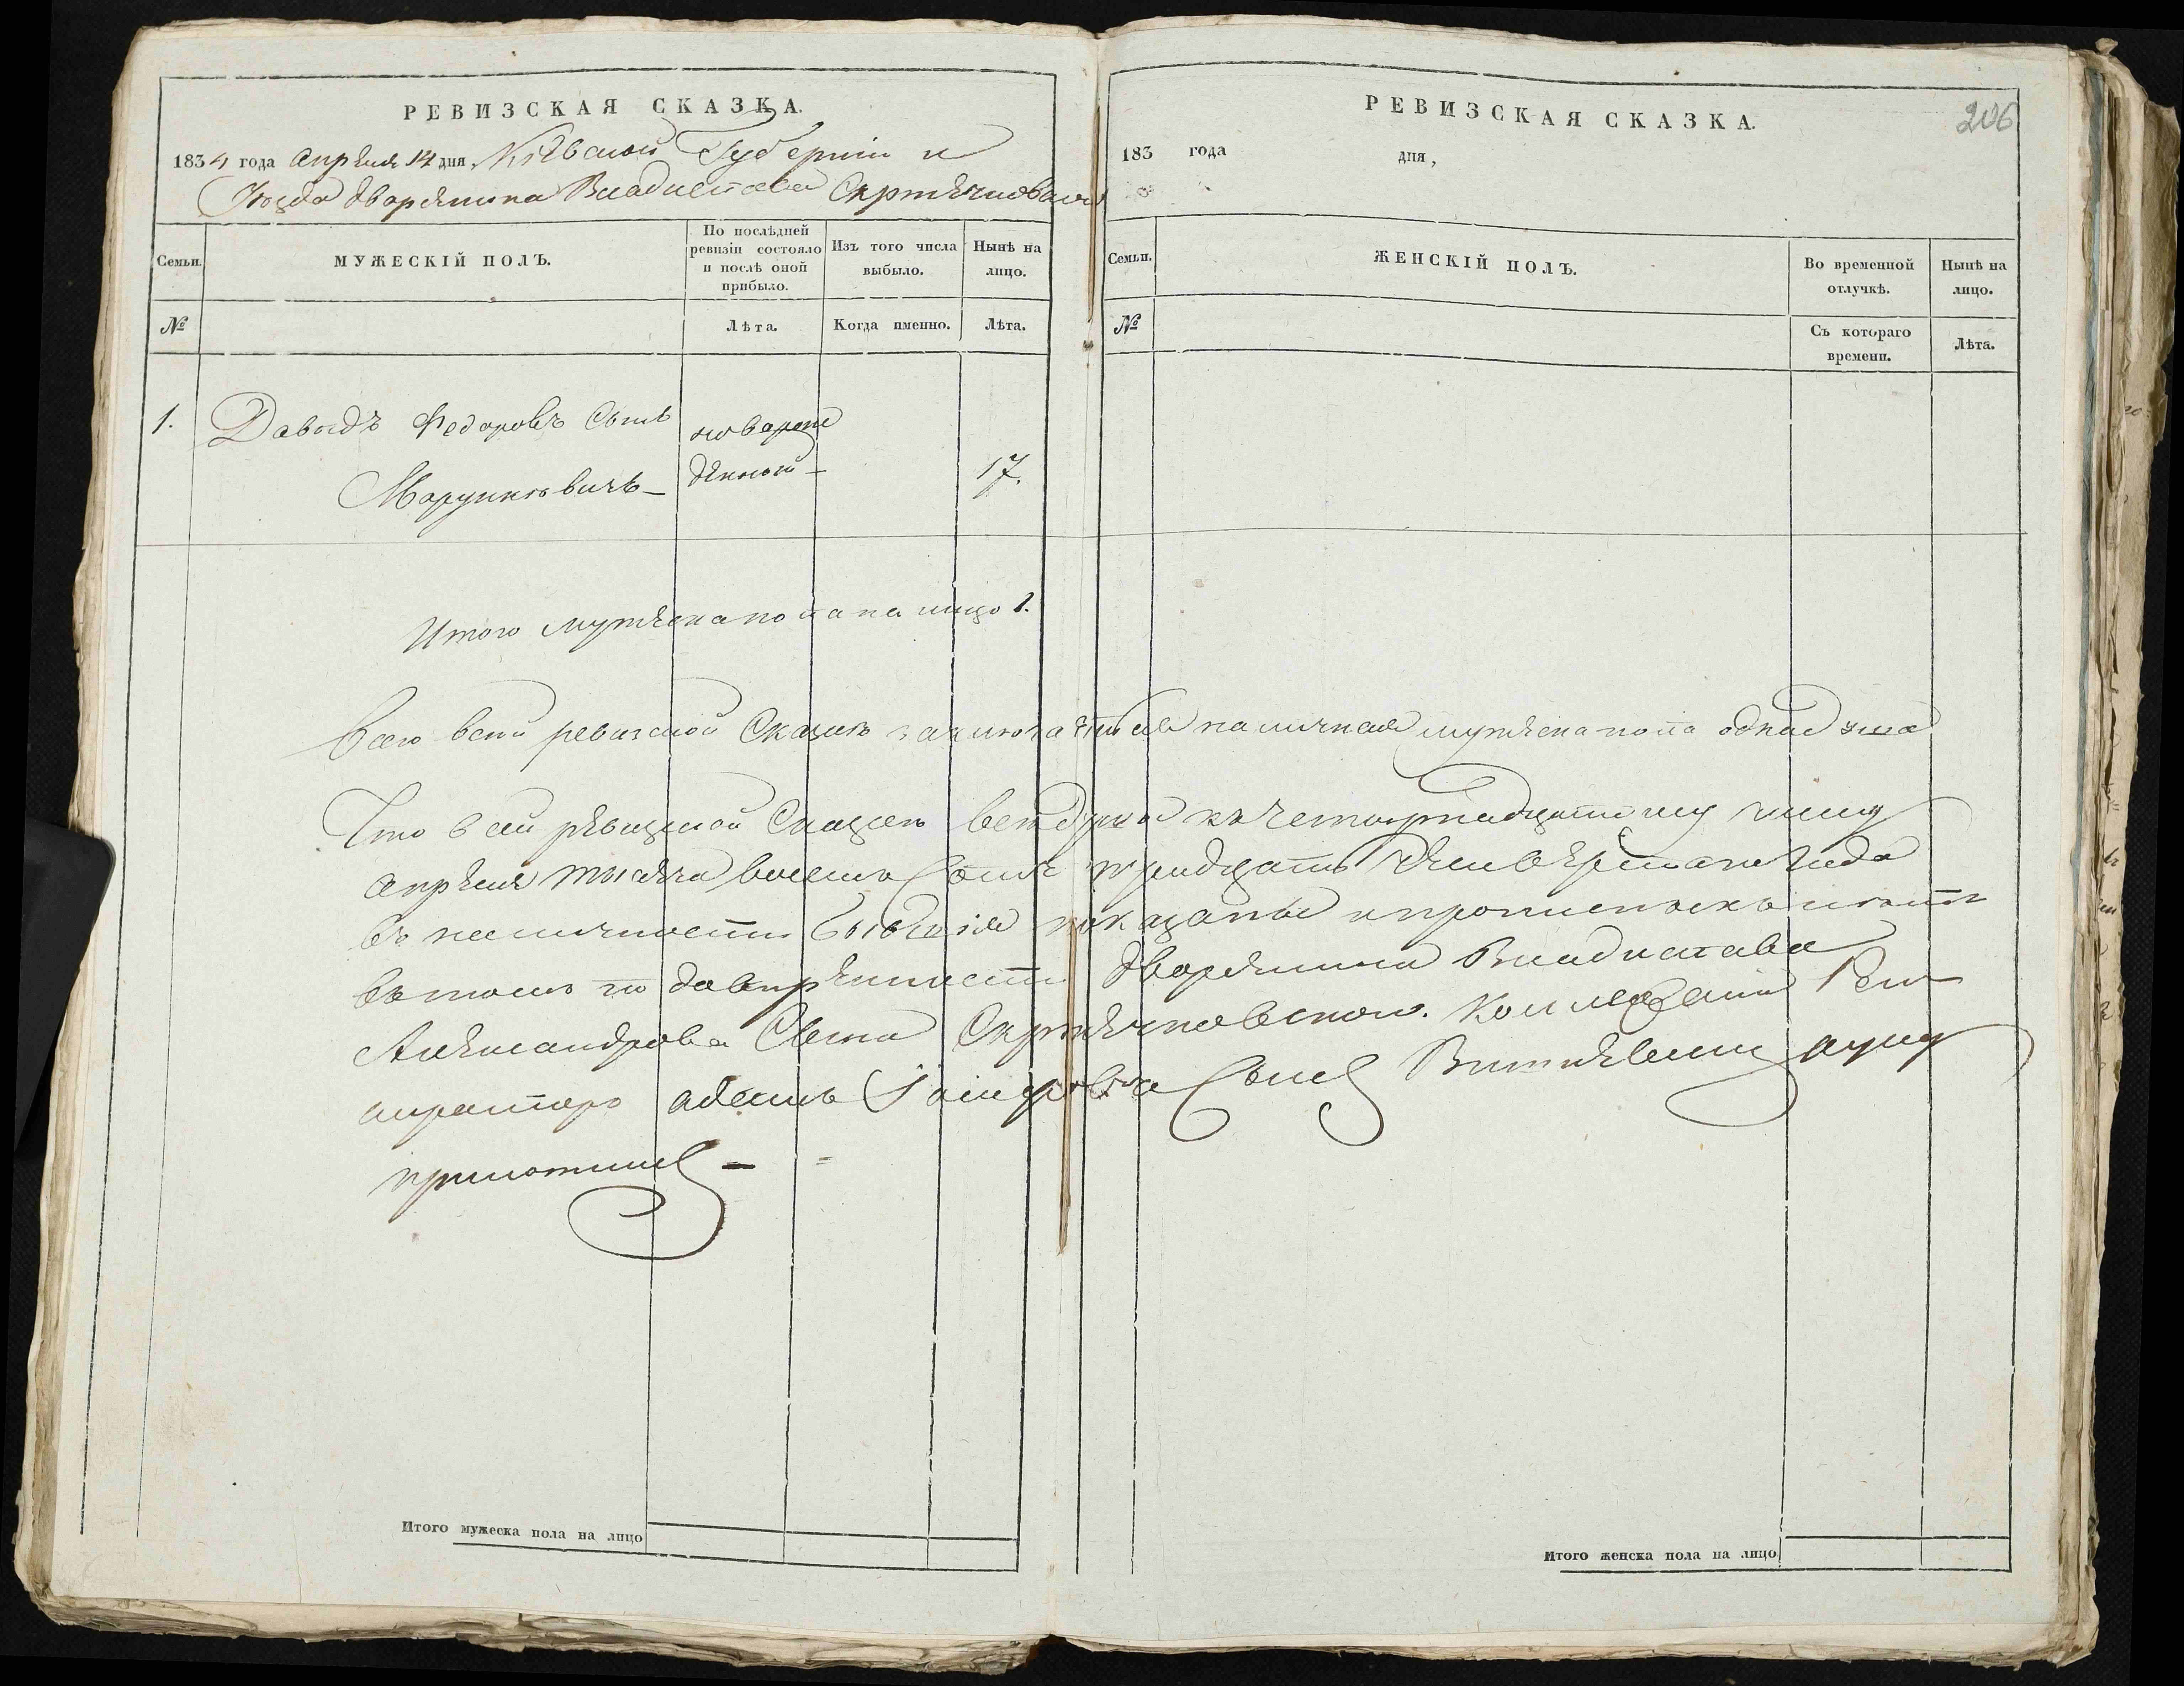 РЕВИЗСКАЯ СКАЗКА.
1834 года Апреля 14 дня, Кіевской Губерніи и
Уѣзда дворянина Владислава
Семьи.
МУЖЕСКІЙ ПОЛЪ.
По послѣдней ревизіи состояло и послѣ оной прибыло.
Изъ того числа выбыло.
Нынѣ на лицо.
№
Лѣта.
Когда именно.
Лѣта.
1. Давыдъ Федоровъ Сынъ новорож
Марункевичъ- денной - 17.
Итого мужеска пола на лицо 1.
Всего в сей ревизской Сказке заключается наличная мужеска пола одна душа
Что в сей ревизской Сказке все души к четырнадцатому числу
апреля тысяча восемь сот тридцать четвертаго года
въ наличности бывшія показаны и прописных нет
в том по доверенности дворянина Владислава
Александрова Сына Коллежский Реги
стратор Адам Сын руку
приложил - =
Итого мужеска пола на лицо
РЕВИЗСКАЯ СКАЗКА.
206
183 года дня,
Семьи.
ЖЕНСКІЙ ПОЛЪ.
Во временной отлучкѣ.
Нынѣ на лицо.
№
Съ котораго времени.
Лѣта.
Итого женска пола на лицо